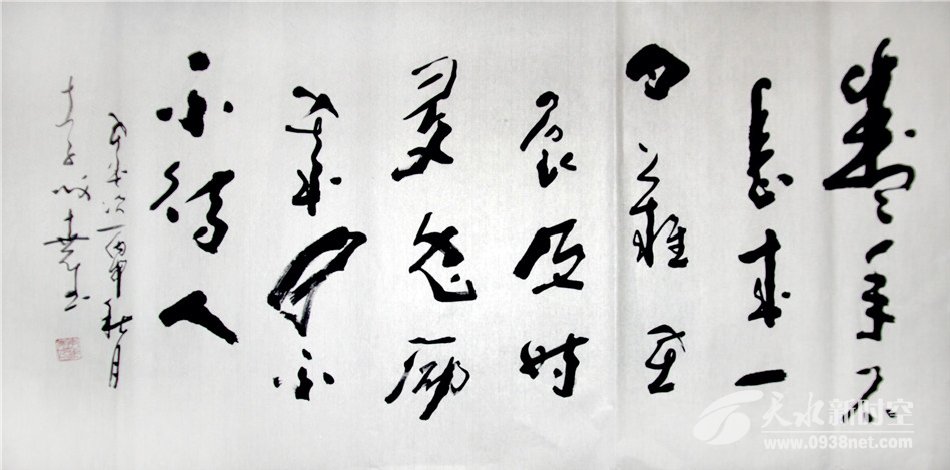 盛年不
重来一
日難再
晨及时
当勉励
岁月不
不待人
岁次丙申秋月
天水新时空
www.0938net.com